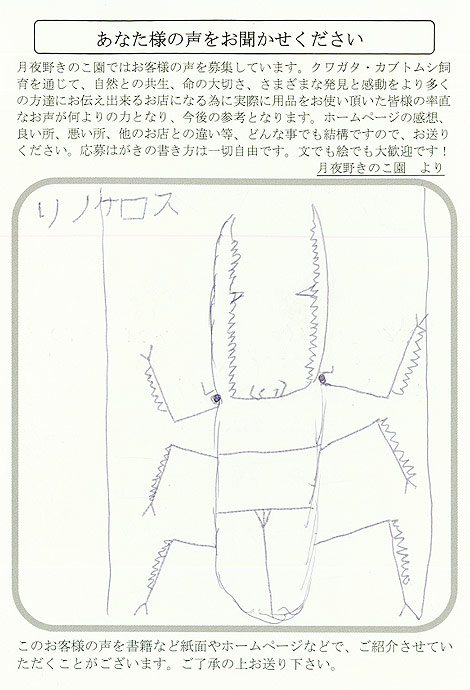 あなた様の声をお聞かせください
月夜野きのこ園ではお客様の声を募集しています。クワガタ・カブトムシ飼
育を通じて、自然との共生、命の大切さ、さまざまな発見と感動をより多く
の方達にお伝え出来るお店になる為に実際に用品をお使い頂いた皆様の率直
なお声が何よりの力となり、今後の参考となります。ホームページの感想、
良い所、悪い所、他のお店との違い等、どんな事でも結構ですので、お送り
ください。応募はがきの書き方は一切自由です。文でも絵でも大歓迎です！
月夜野きのこ園　より
リノケロス
このお客様の声を書籍など紙面やホームページなどで、ご紹介させてい
ただくことがございます。ご了承の上お送り下さい。